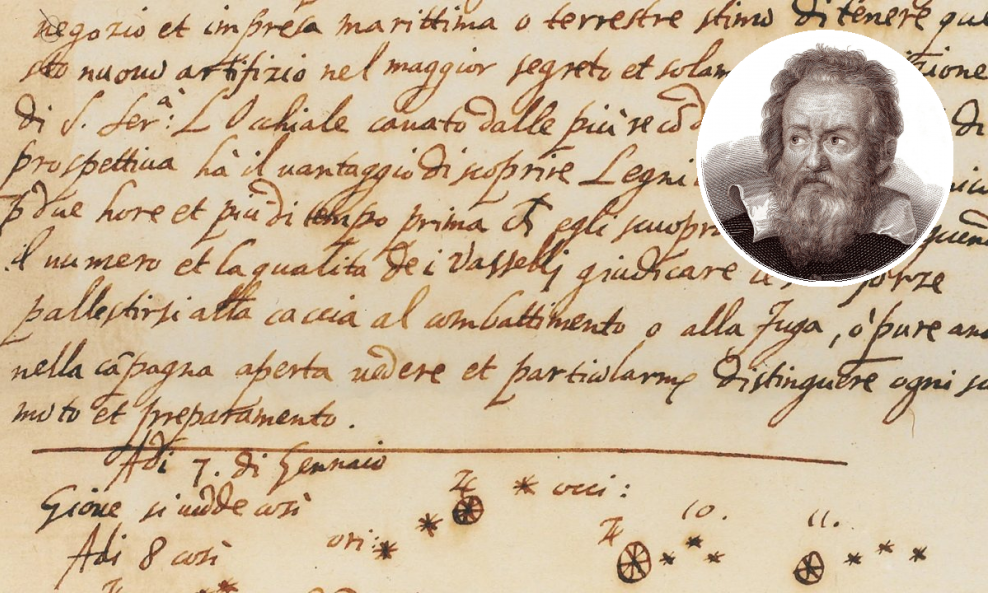 negozio et impresa marittima o terrestre stimo di tenere que
sto nuouo artifizio nel maggior segreto et solam
di S. Serª: L Occhiale cauato dalle più re cō di
prospettiua hà il uantaggio di scoprire Legni
p due hore et più di tempo prima ch egli scuopr
il numero et la qualità de i Vasselli giudicare forze
pallestirsi alla caccia al combattimento o alla fuga, ò pure an
nella cāpagna aperta uedere et particularmᵉ distinguere ogni su
moto et preparamento.
Adi 7. di Gennaio
Gioue si uedde così
♃ * occi:
Adi 8 così
ori: * *
♃ 10. * * *
11. * * *
♃